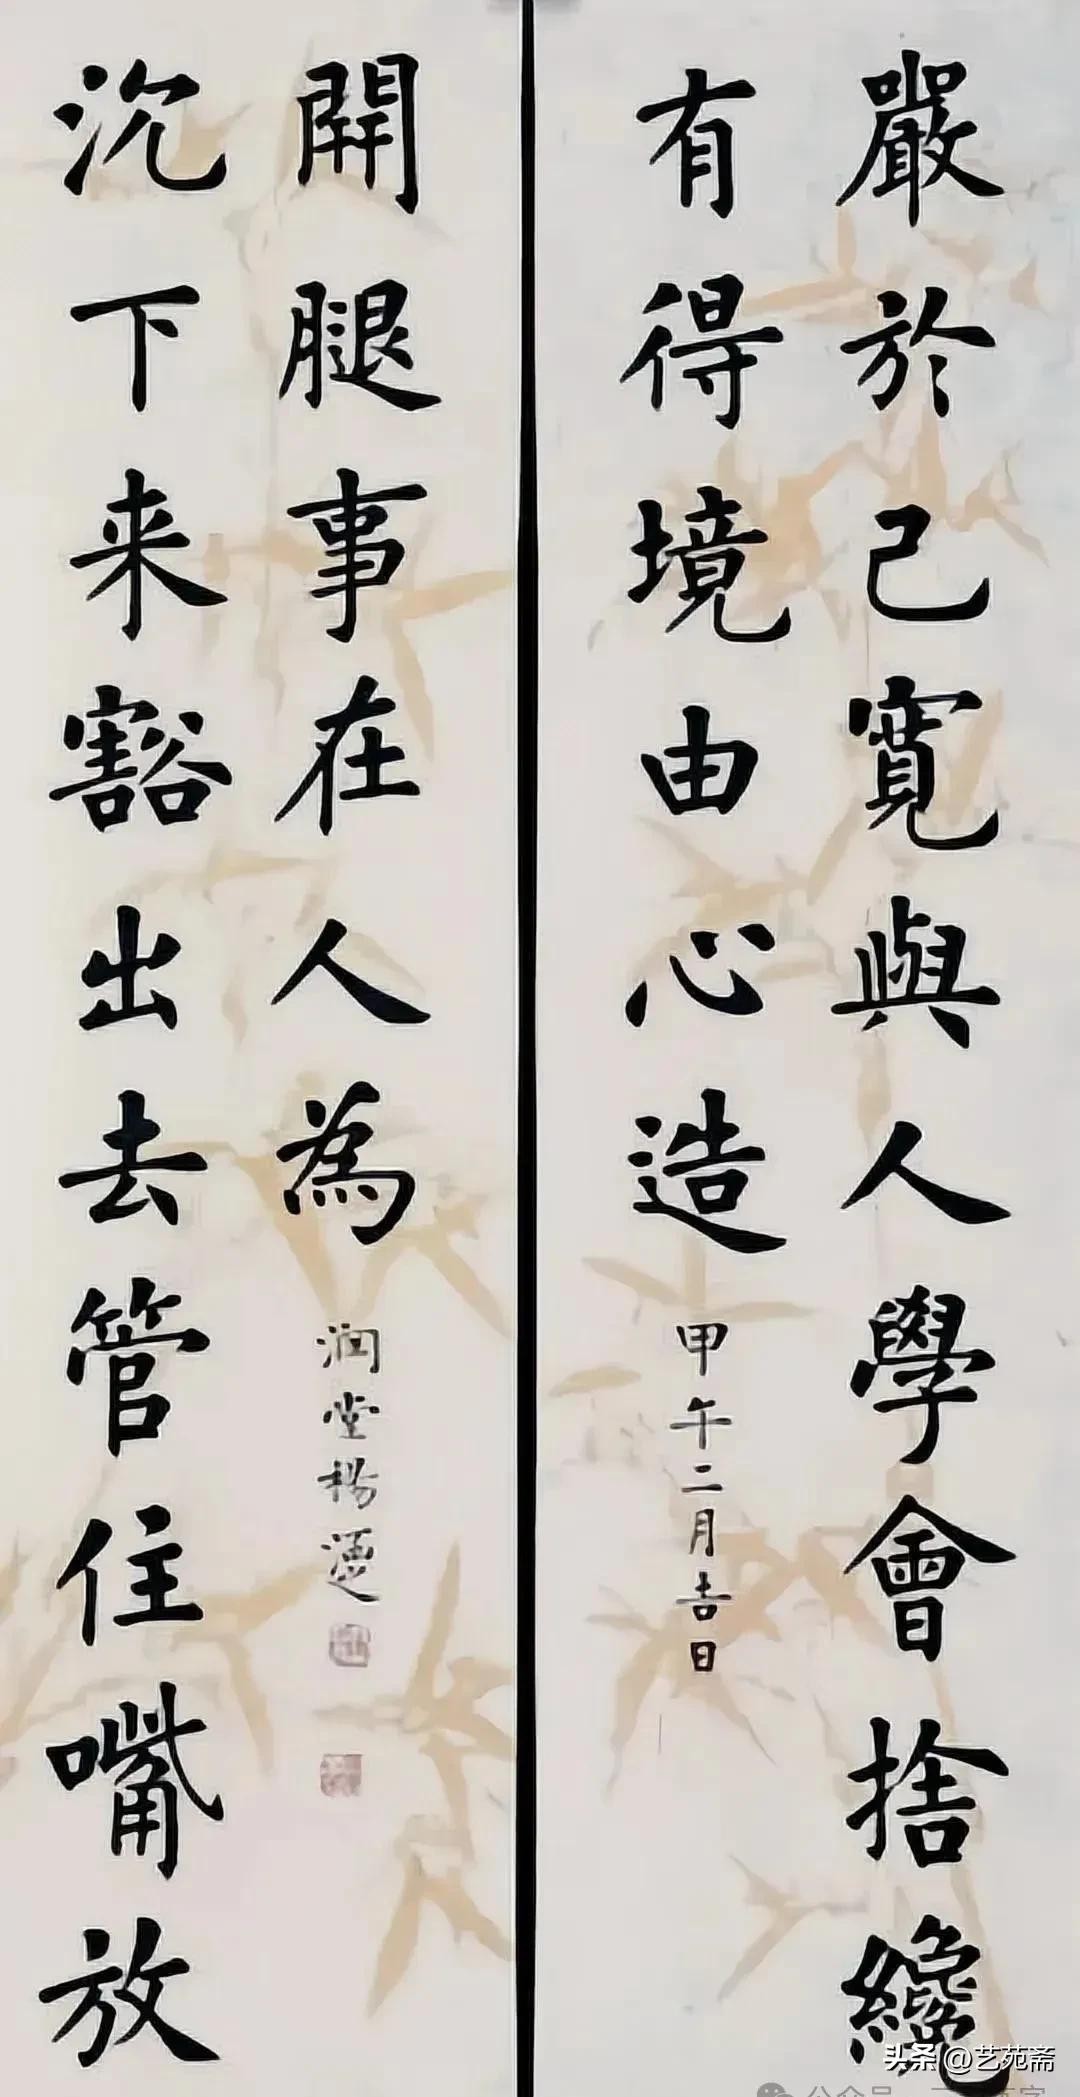 嚴於己寬與人學會捨纔
有得境由心造
甲午二月吉日
沉下来豁出去管住嘴放
開腿事在人為
润堂楊
头条 @艺苑斋